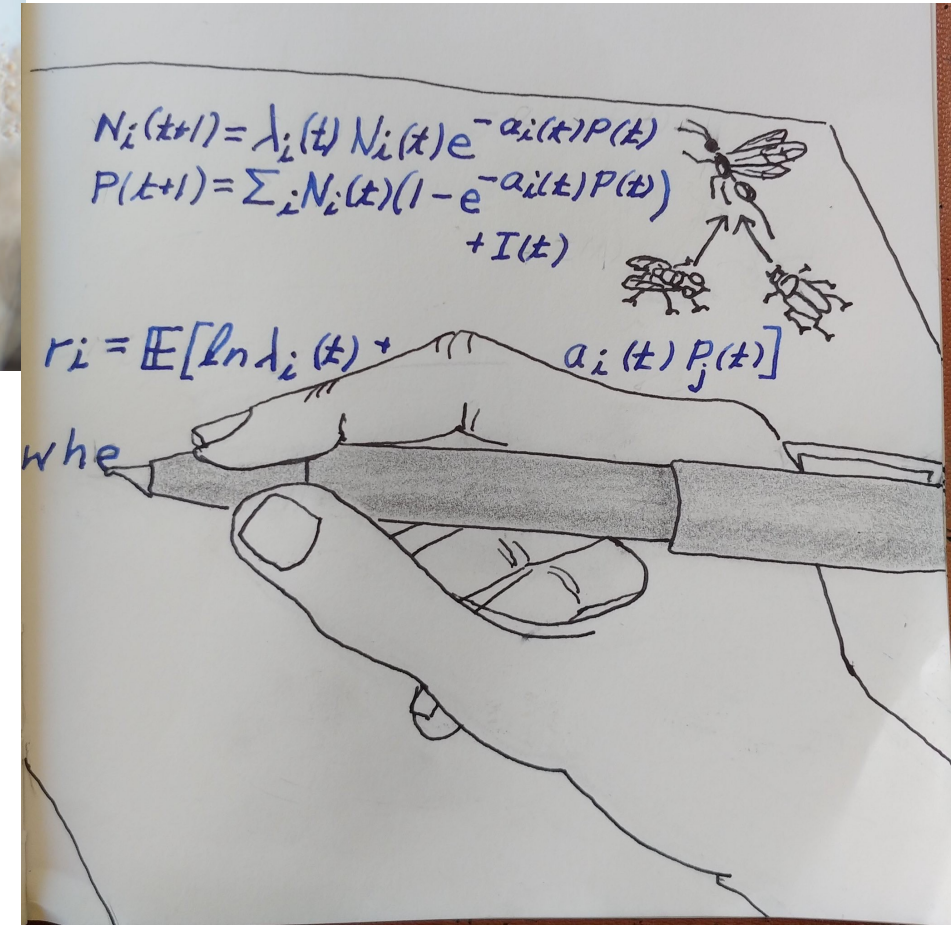 Nᵢ(t+1) = λᵢ(t) Nᵢ(t) e^-aᵢ(t)P(t)
P(t+1) = Σᵢ Nᵢ(t)(1 - e^-aᵢ(t)P(t))
+ I(t)
rᵢ = 𝔼[ln λᵢ(t) + aᵢ(t) Pⱼ(t)]
whe